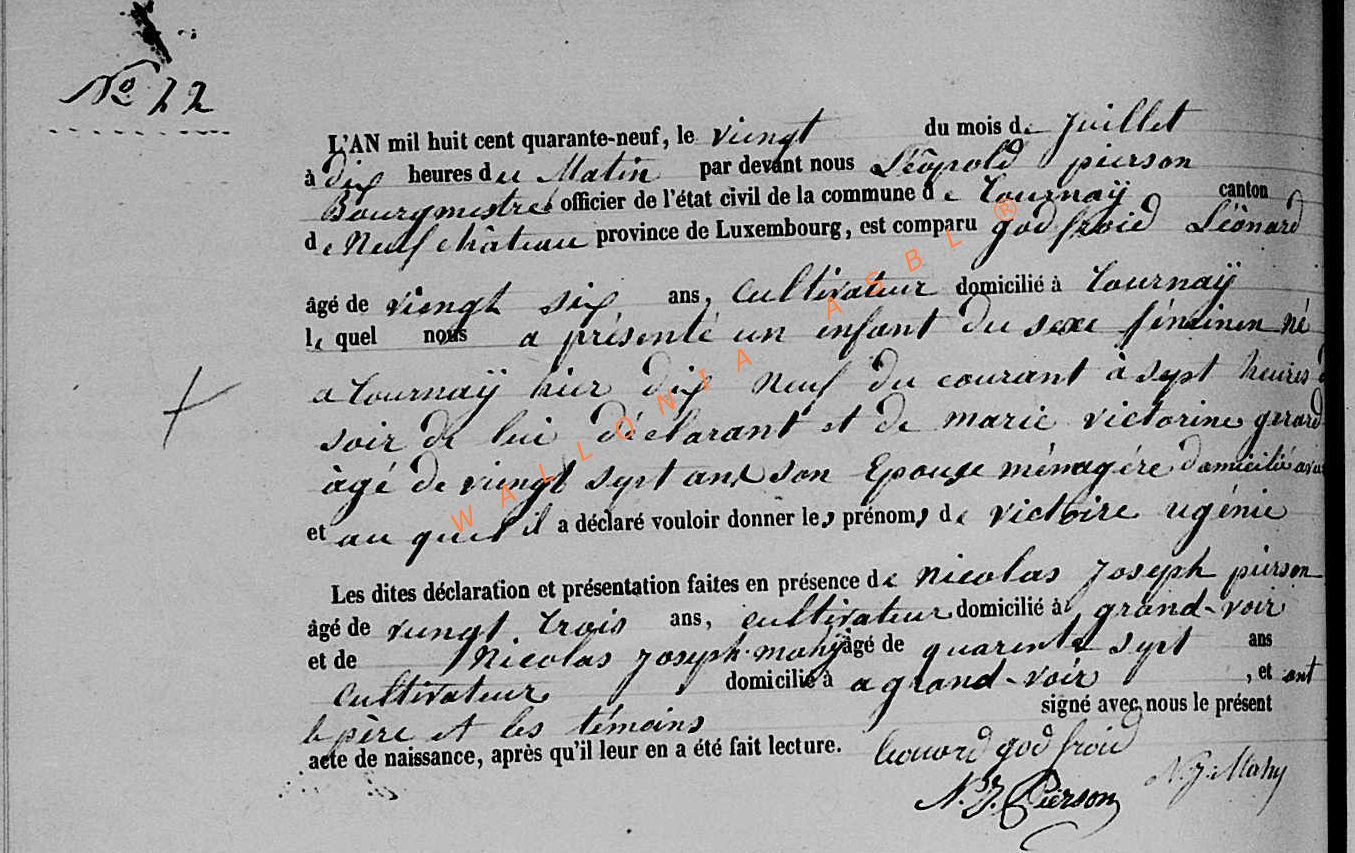 No 22
L'AN mil huit cent quarante-neuf, le viengt du mois de Juillet
à dix heures du Matin par devant nous Léopold pierson
Bourgmestre officier de l'état civil de la commune de Tournaÿ canton
de Neufchâteau province de Luxembourg, est comparu godfroid Léonard
âgé de viengt six ans, Cultivateur domicilié à Tournaÿ
le quel nous a présenté un enfant du sexe féminin né
a Tournaÿ hier dix Neuf du courant à sept heures d
soir de lui déclarant et de marie victorine gerard
âgé de viengt sept ans son Epouse ménagére domicilié avec
et au quel il a déclaré vouloir donner les prénoms de victoire ugénie
Les dites déclaration et présentation faites en présence de Nicolas Joseph pierson
âgé de vingt trois ans, cultivateur domicilié à grand-voir
et de Nicolas Joseph mahy âgé de quarente sept ans
Cultivateur domicilié à a grand-voir , et ont
le père et les témoins signé avec nous le présent
acte de naissance, après qu'il leur en a été fait lecture.
Leonard godfroid
N. J. Mahy
N. J. Pierson
WALLONIA ASBL ®